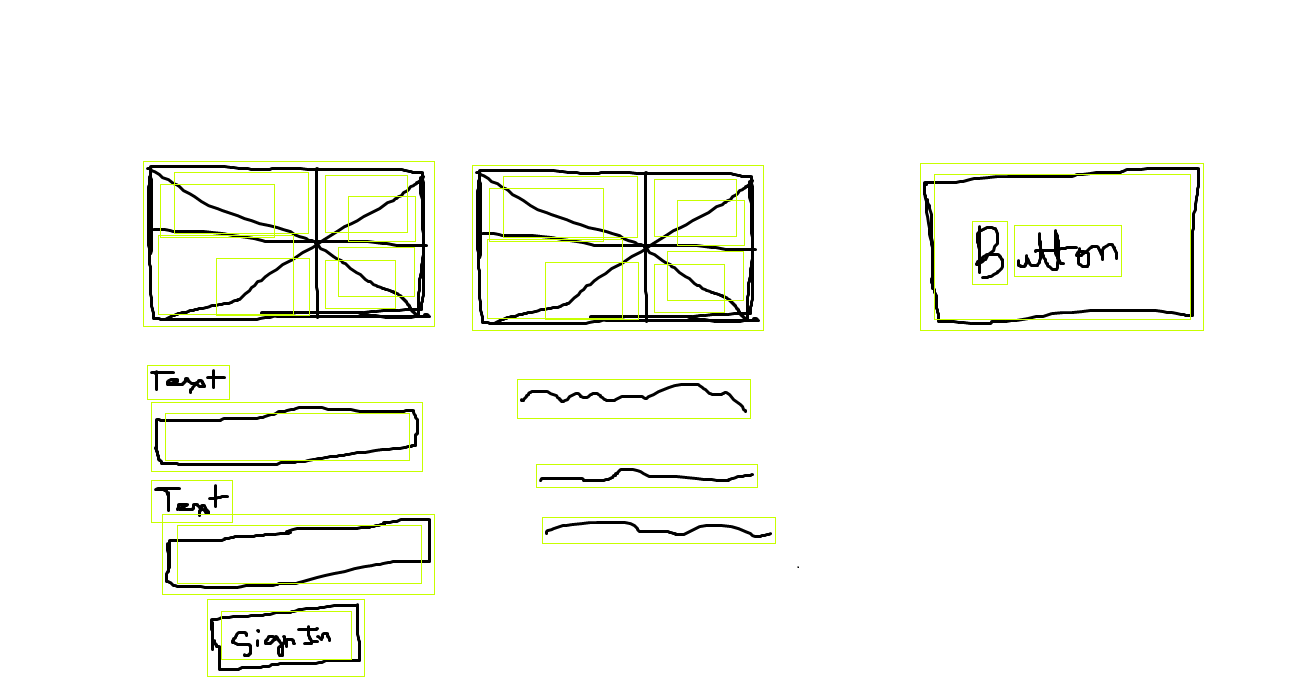 Button
Text
Text
Sign In